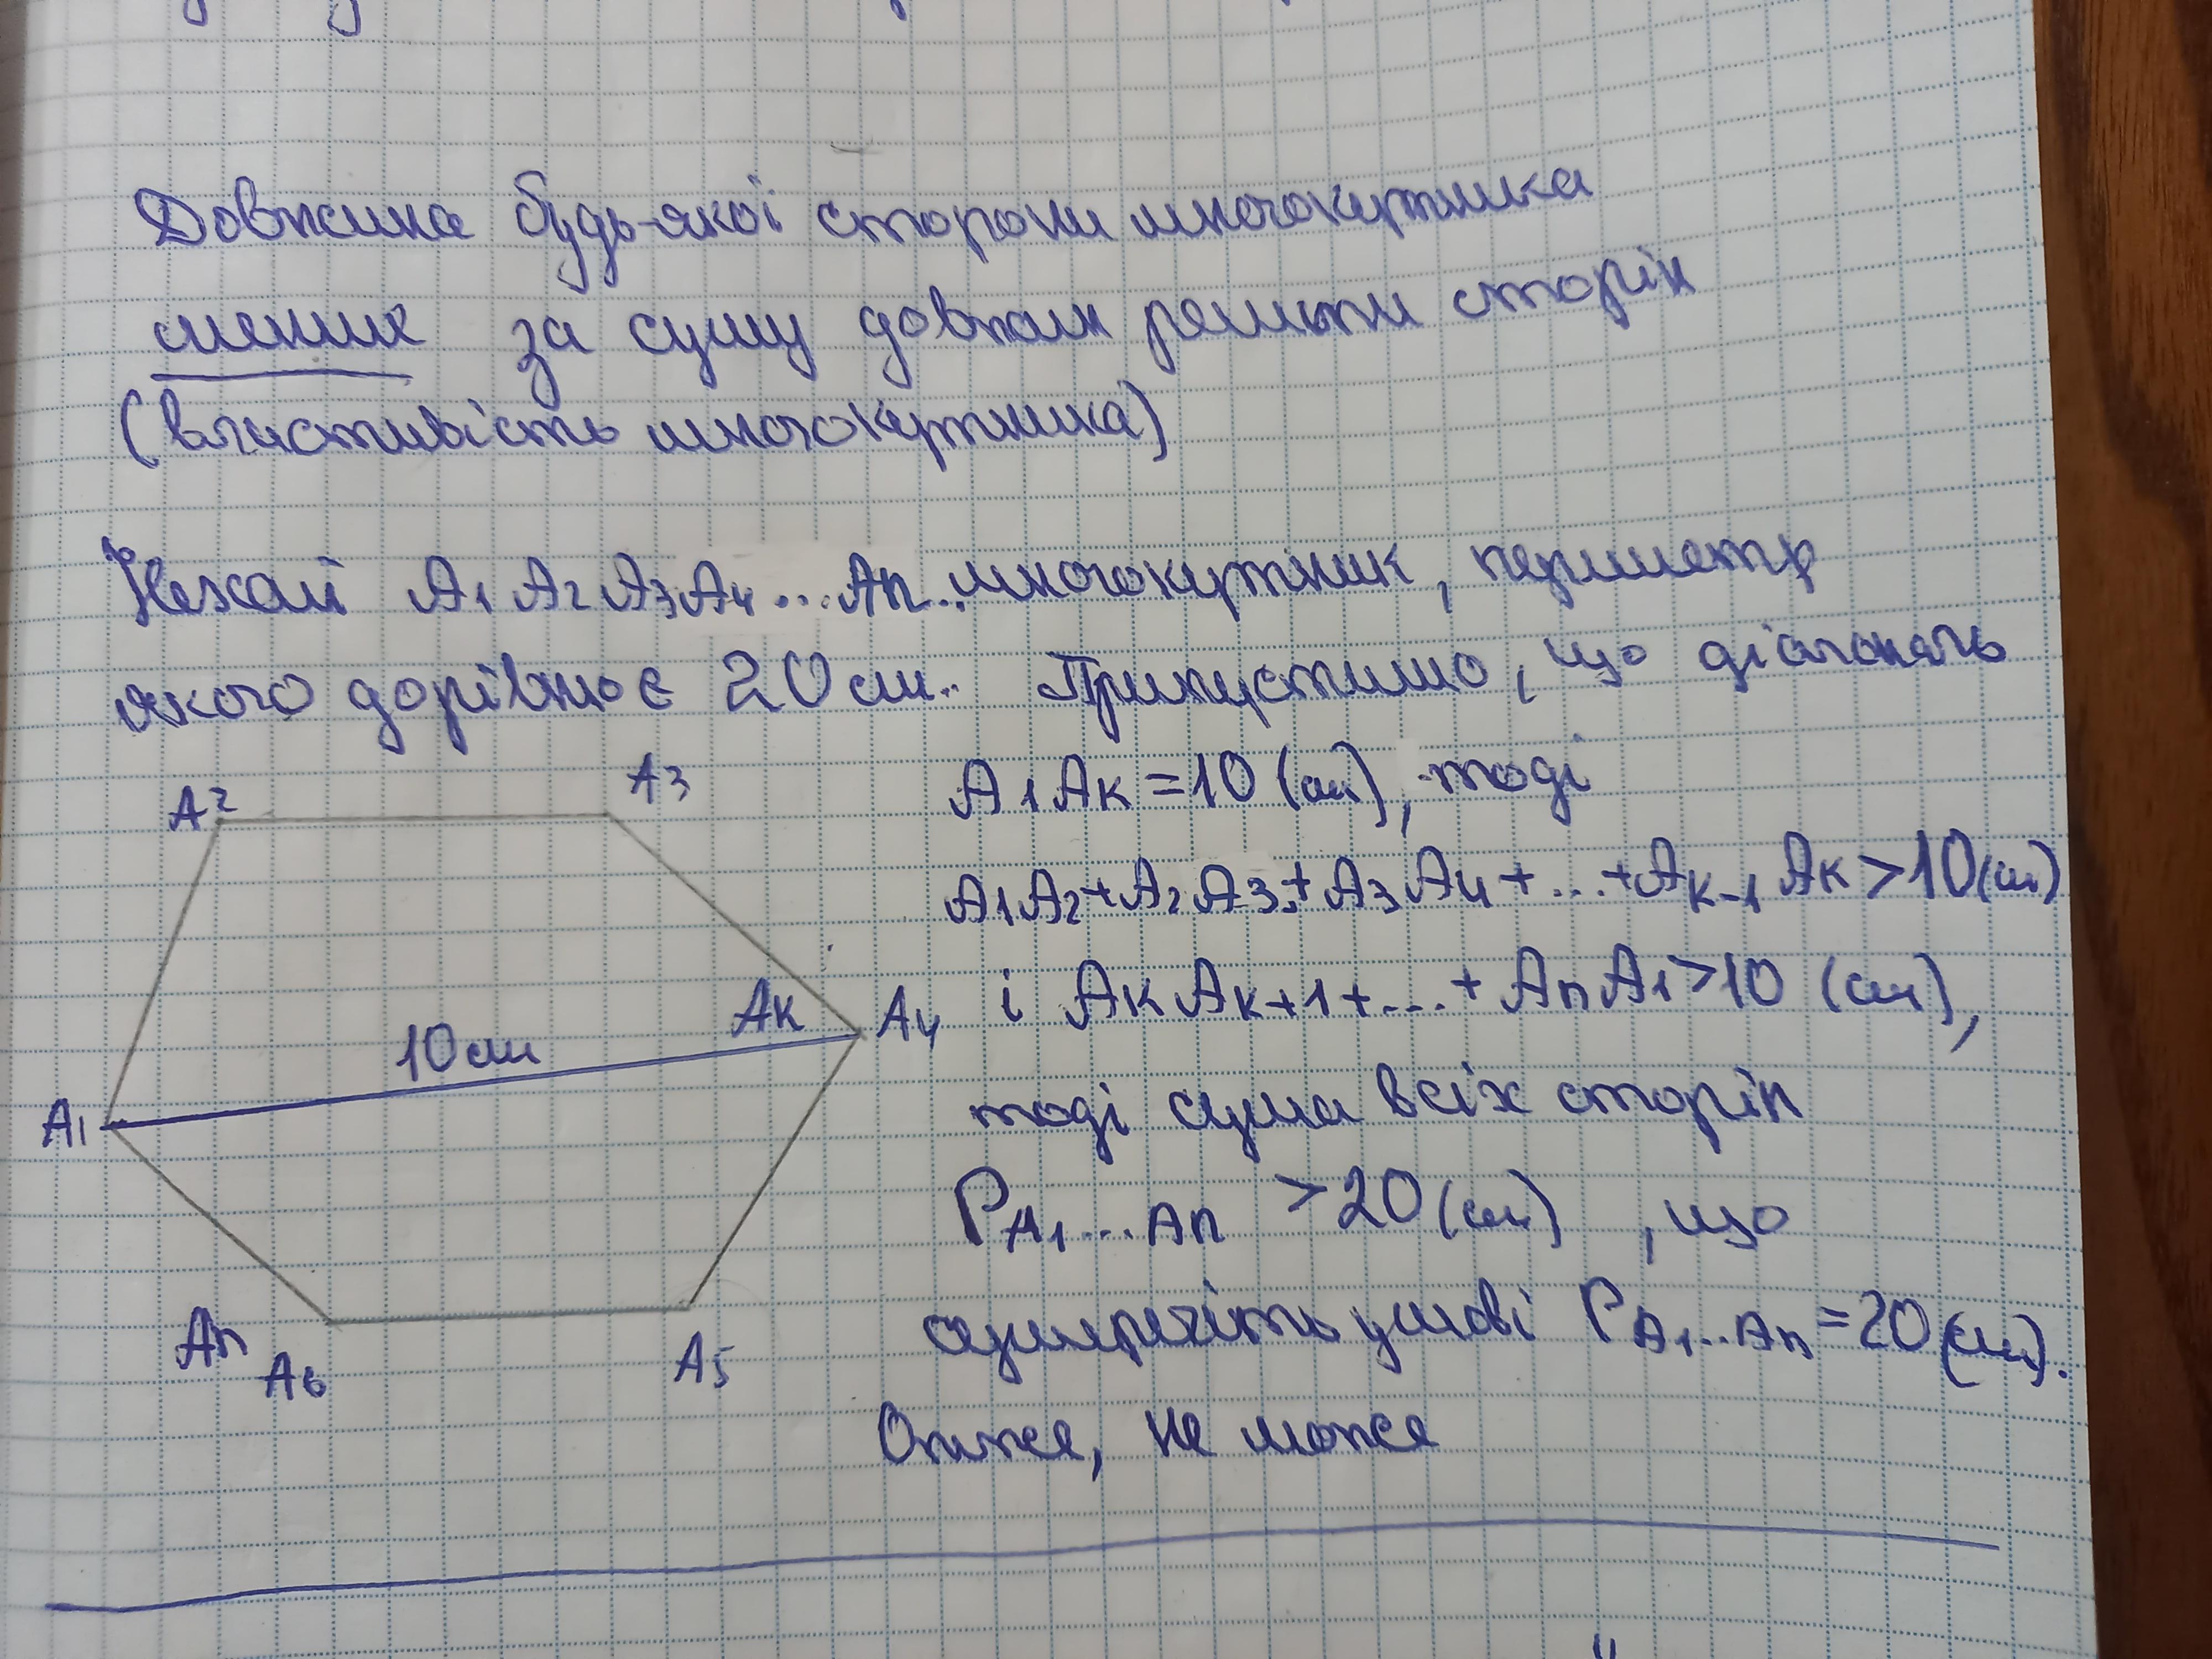 Довжина будь-якої сторони многокутника
менше за суму довжин решти сторін
(властивість многокутника)
Нехай A1 A2 A3 A4 ... An многокутник, периметр
якого дорівнює 20 см. Припустимо, що діагональ
A1 Ak = 10 (см), тоді
A1A2 + A2A3 + A3A4 + ... + Ak-1 Ak > 10 (см)
і Ak Ak+1 + ... + An A1 > 10 (см),
тоді сума всіх сторін
P A1...An > 20 (см), що
суперечить умові P A1...An = 20 (см).
Отже, не може
A2
A3
Ak
A4
10 см
A1
An
A6
A5